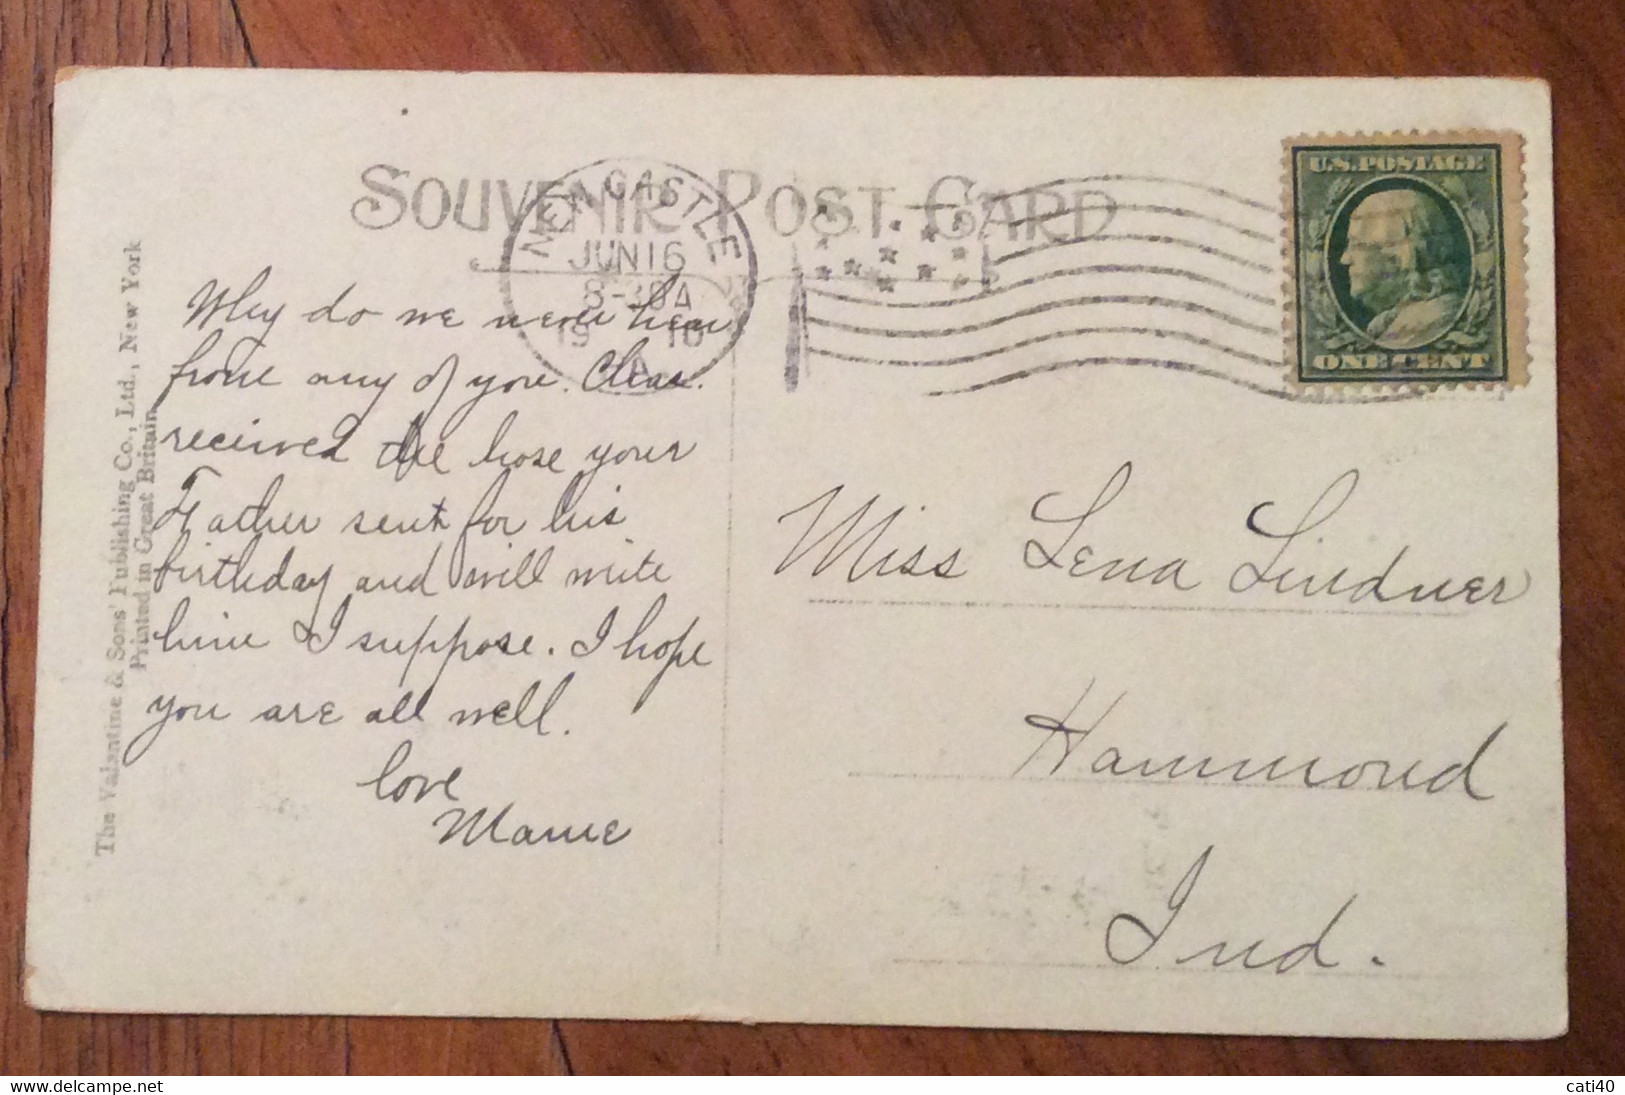 SOUVENIR POST CARD
NEW CASTLE
JUN 16
8-30A
19 10
PA
U.S. POSTAGE
ONE CENT
Why do we never hear
from any of you. Chas.
received the hose your
Father sent for his
birthday and will write
him I suppose. I hope
you are all well.
love
Mame
Miss Lena Lindner
Hammond
Ind.
The Valentine & Sons' Publishing Co., Ltd., New York
Printed in Great Britain
cati40